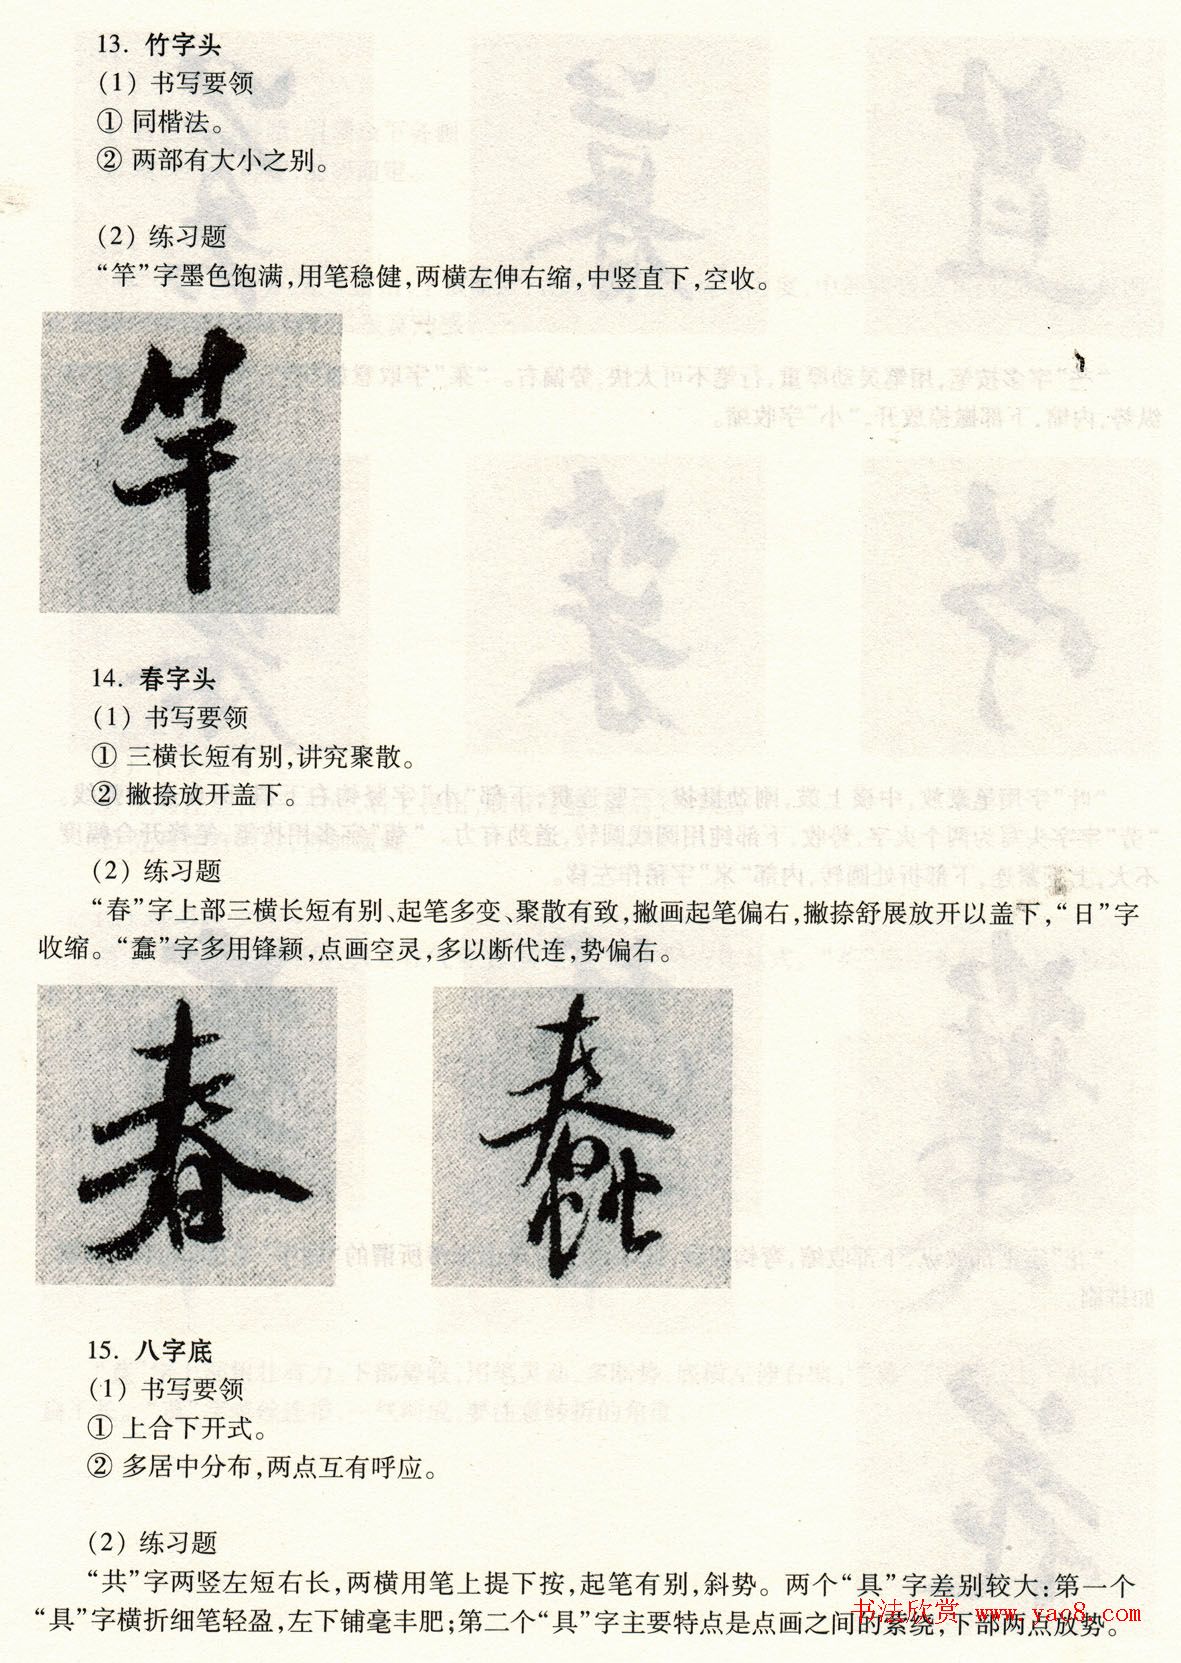 13. 竹字头
(1) 书写要领
① 同楷法。
② 两部有大小之别。
(2) 练习题
“竿”字墨色饱满,用笔稳健,两横左伸右缩,中竖直下,空收。
竿
14. 春字头
(1) 书写要领
① 三横长短有别,讲究聚散。
② 撇捺放开盖下。
(2) 练习题
“春”字上部三横长短有别、起笔多变、聚散有致,撇画起笔偏右,撇捺舒展放开以盖下,“日”字
收缩。“蠢”字多用锋颖,点画空灵,多以断代连,势偏右。
春 蠢
15. 八字底
(1) 书写要领
① 上合下开式。
② 多居中分布,两点互有呼应。
(2) 练习题
“共”字两竖左短右长,两横用笔上提下按,起笔有别,斜势。两个“具”字差别较大:第一个
“具”字横折细笔轻盈,左下铺毫丰肥;第二个“具”字主要特点是点画之间的萦绕,下部两点放势。
书法欣赏 www.yac8.com